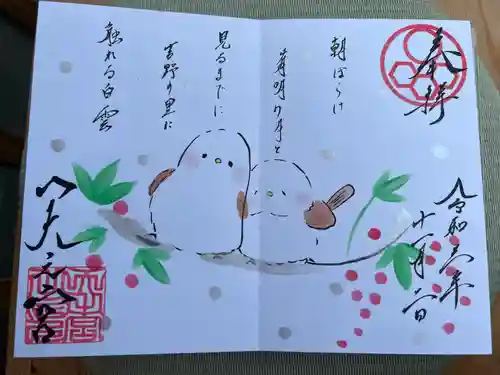 奉拝
令和三年
十一月二日
朝ぼらけ
有明の月と
見るまでに
吉野の里に
降れる白雪